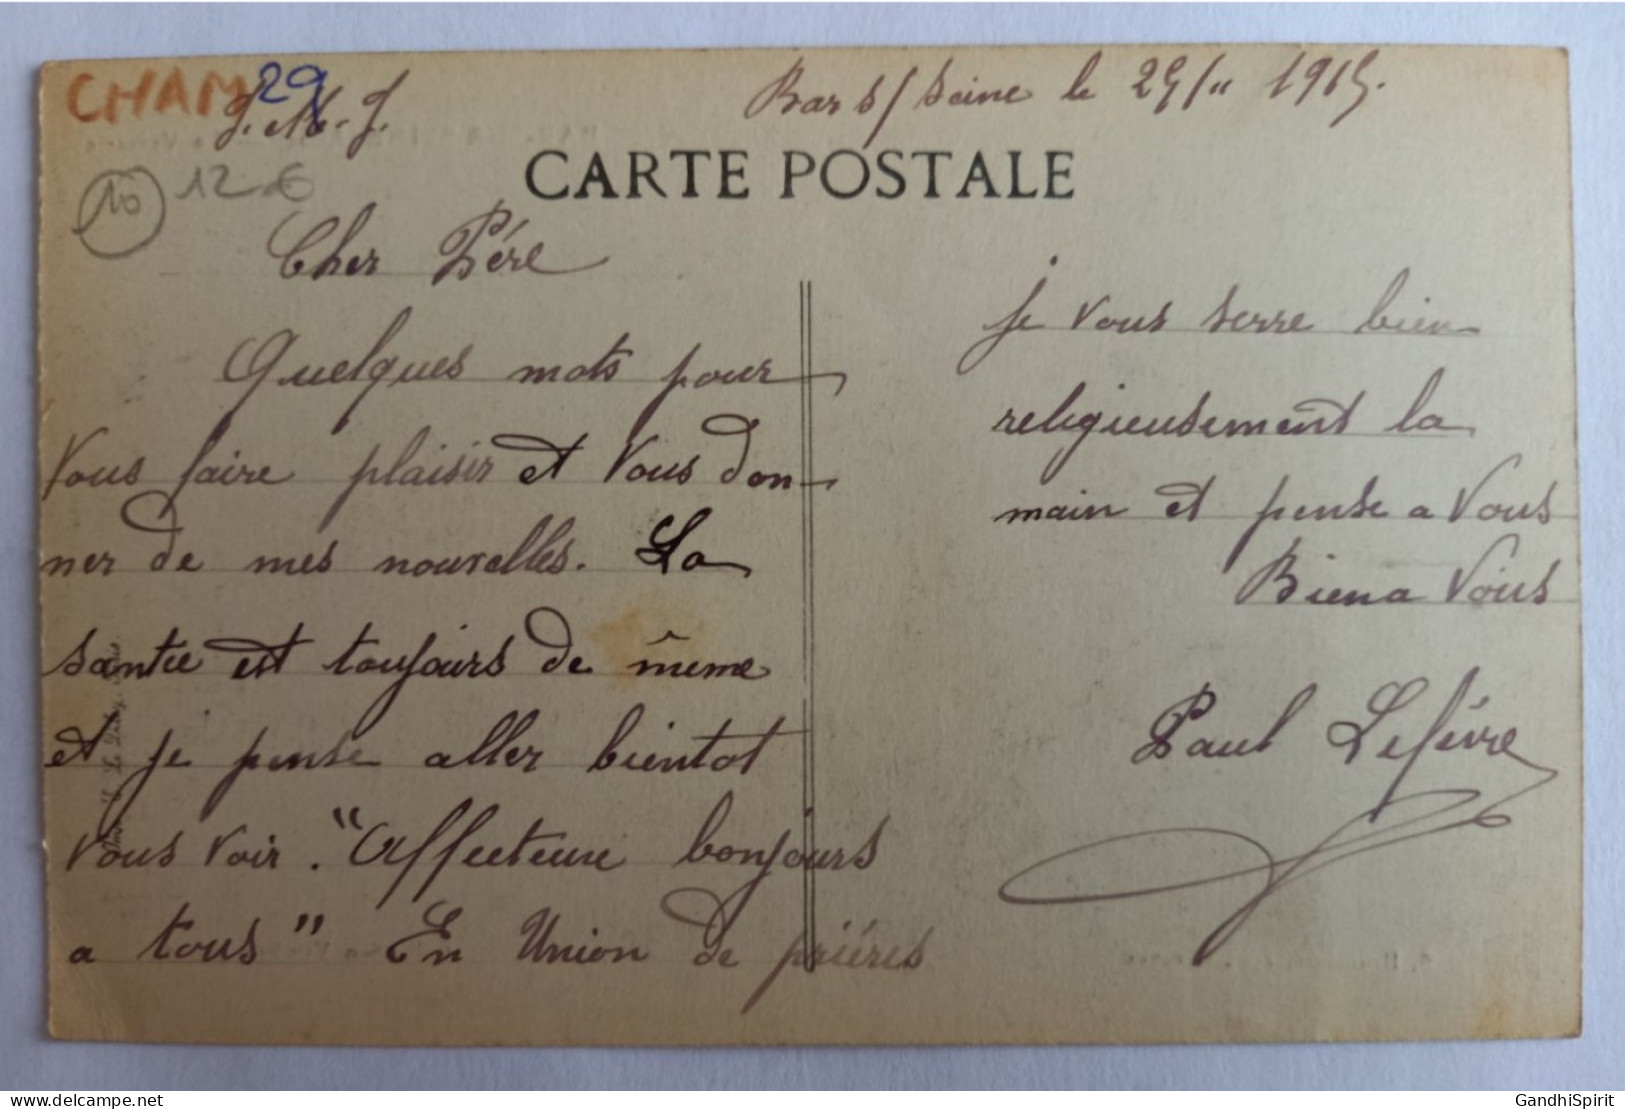 CHAM 29
J. M. J.
Bar s/ Seine le 29/11 1915.
10 12 €
CARTE POSTALE
Cher Père
Quelques mots pour
Vous faire plaisir et Vous don-
ner de mes nouvelles. La
santée est toujours de même
et je pense aller bientot
Vous voir. "Affecteuse bonjours
a tous" En Union de priéres
je vous serre bien
religieusement la
main et pense a Vous
Bien a Vous
Paul Lefévre
GandhiSpirit